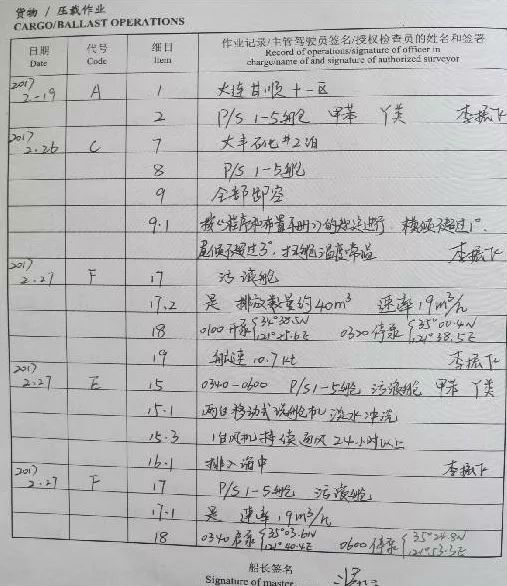 货物 / 压载作业
CARGO/BALLAST OPERATIONS
日期 代号 细目 作业记录/主管驾驶员签名/授权检查员的姓名和签署
Date Code Item Record of operations/signature of officer in
charge/name of and signature of authorized surveyor
2017
2-19 A 1 大连甘顺十一区
2 P/S 1-5舱 甲苯 Y类 李振飞
2017
2.26 C 7 大丰石化#2泊
8 P/S 1-5舱
9 全部卸空
9.1 按《程序和布置手册》的规定进行 横倾不超过1°.
尾倾不超过3°. 扫舱温度常温 李振飞
2017
2-27 F 17 污液舱
17.2 是 排放数量约40m³ 速率19m³/h
18 0100开泵{34°38.5N 121°25.6E 0320停泵{35°00.4N 121°38.5E
19 航速10.7kt 李振飞
2017
2.27 E 15 0340-0600 P/S 1-5舱 污液舱 甲苯 Y类
15.1 两台移动式洗舱机 淡水冲洗
15.3 1台风机持续通风24小时以上
16.1 排入海中 李振飞
2017
2.27 F 17 P/S 1-5舱 污液舱
17.1 是 速率19m³/h
18 0340启泵{35°03.6N 121°40.4E 0600停泵{35°24.8N 121°53.3E
船长签名
Signature of master